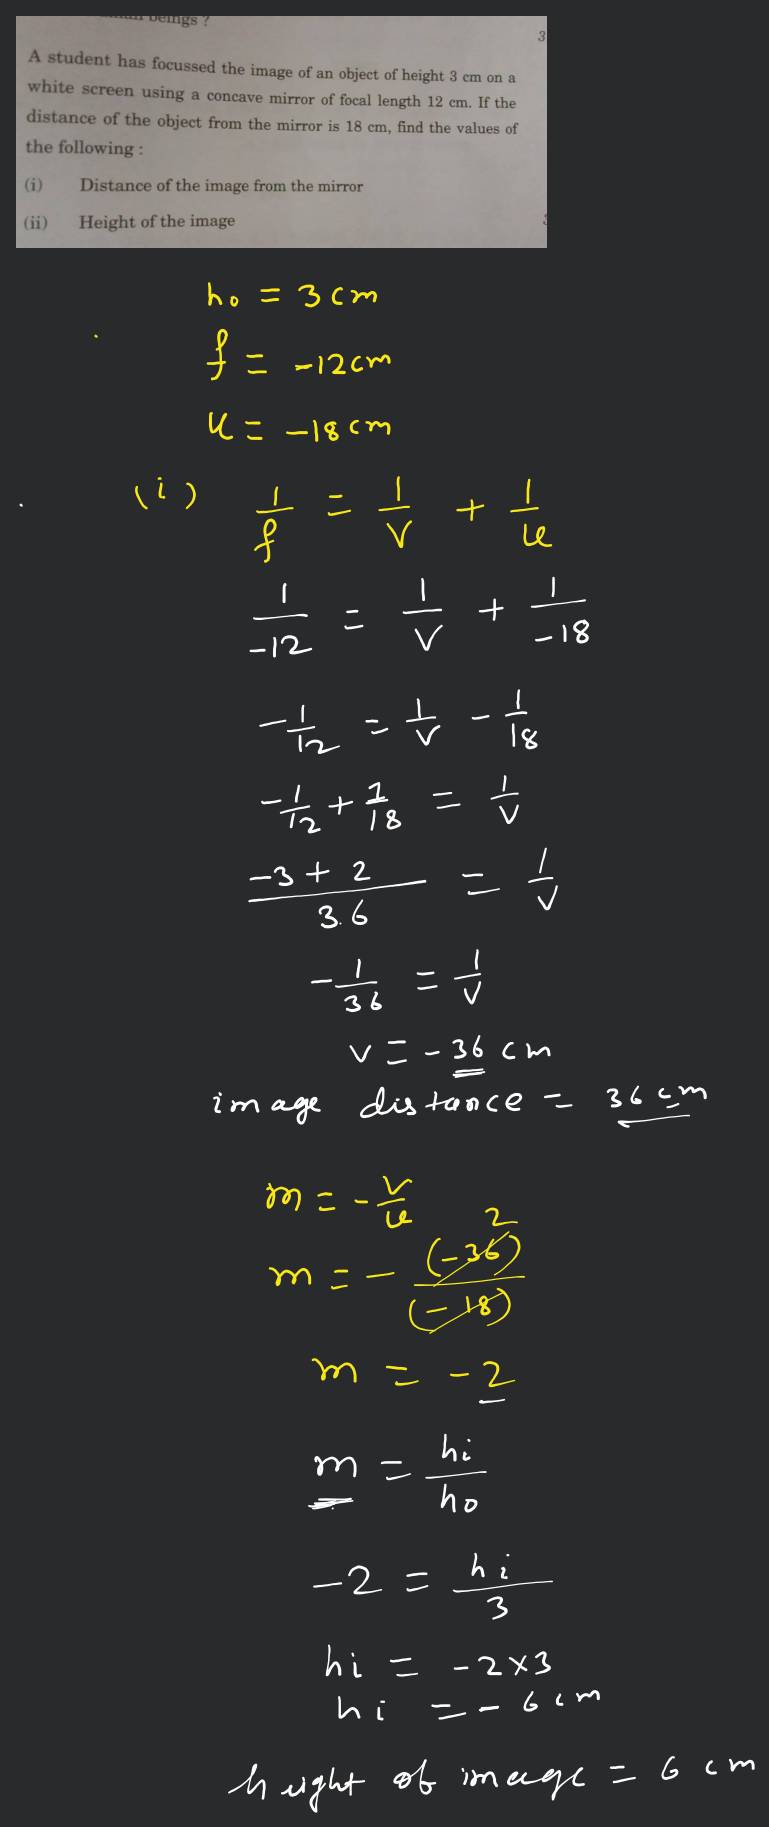 beings ?
3
A student has focussed the image of an object of height 3 cm on a
white screen using a concave mirror of focal length 12 cm. If the
distance of the object from the mirror is 18 cm, find the values of
the following :
(i) Distance of the image from the mirror
(ii) Height of the image
h₀ = 3 cm
f = -12 cm
u = -18 cm
(i) 1/f = 1/v + 1/u
1/-12 = 1/v + 1/-18
-1/12 = 1/v - 1/18
-1/12 + 1/18 = 1/v
-3 + 2/3.6 = 1/v
-1/36 = 1/v
v = -36 cm
image distance = 36 cm
m = -v/u
2
m = - (-36)/(-18)
m = -2
m = hi/ho
-2 = hi/3
hi = -2×3
hi = -6 cm
height of image = 6 cm